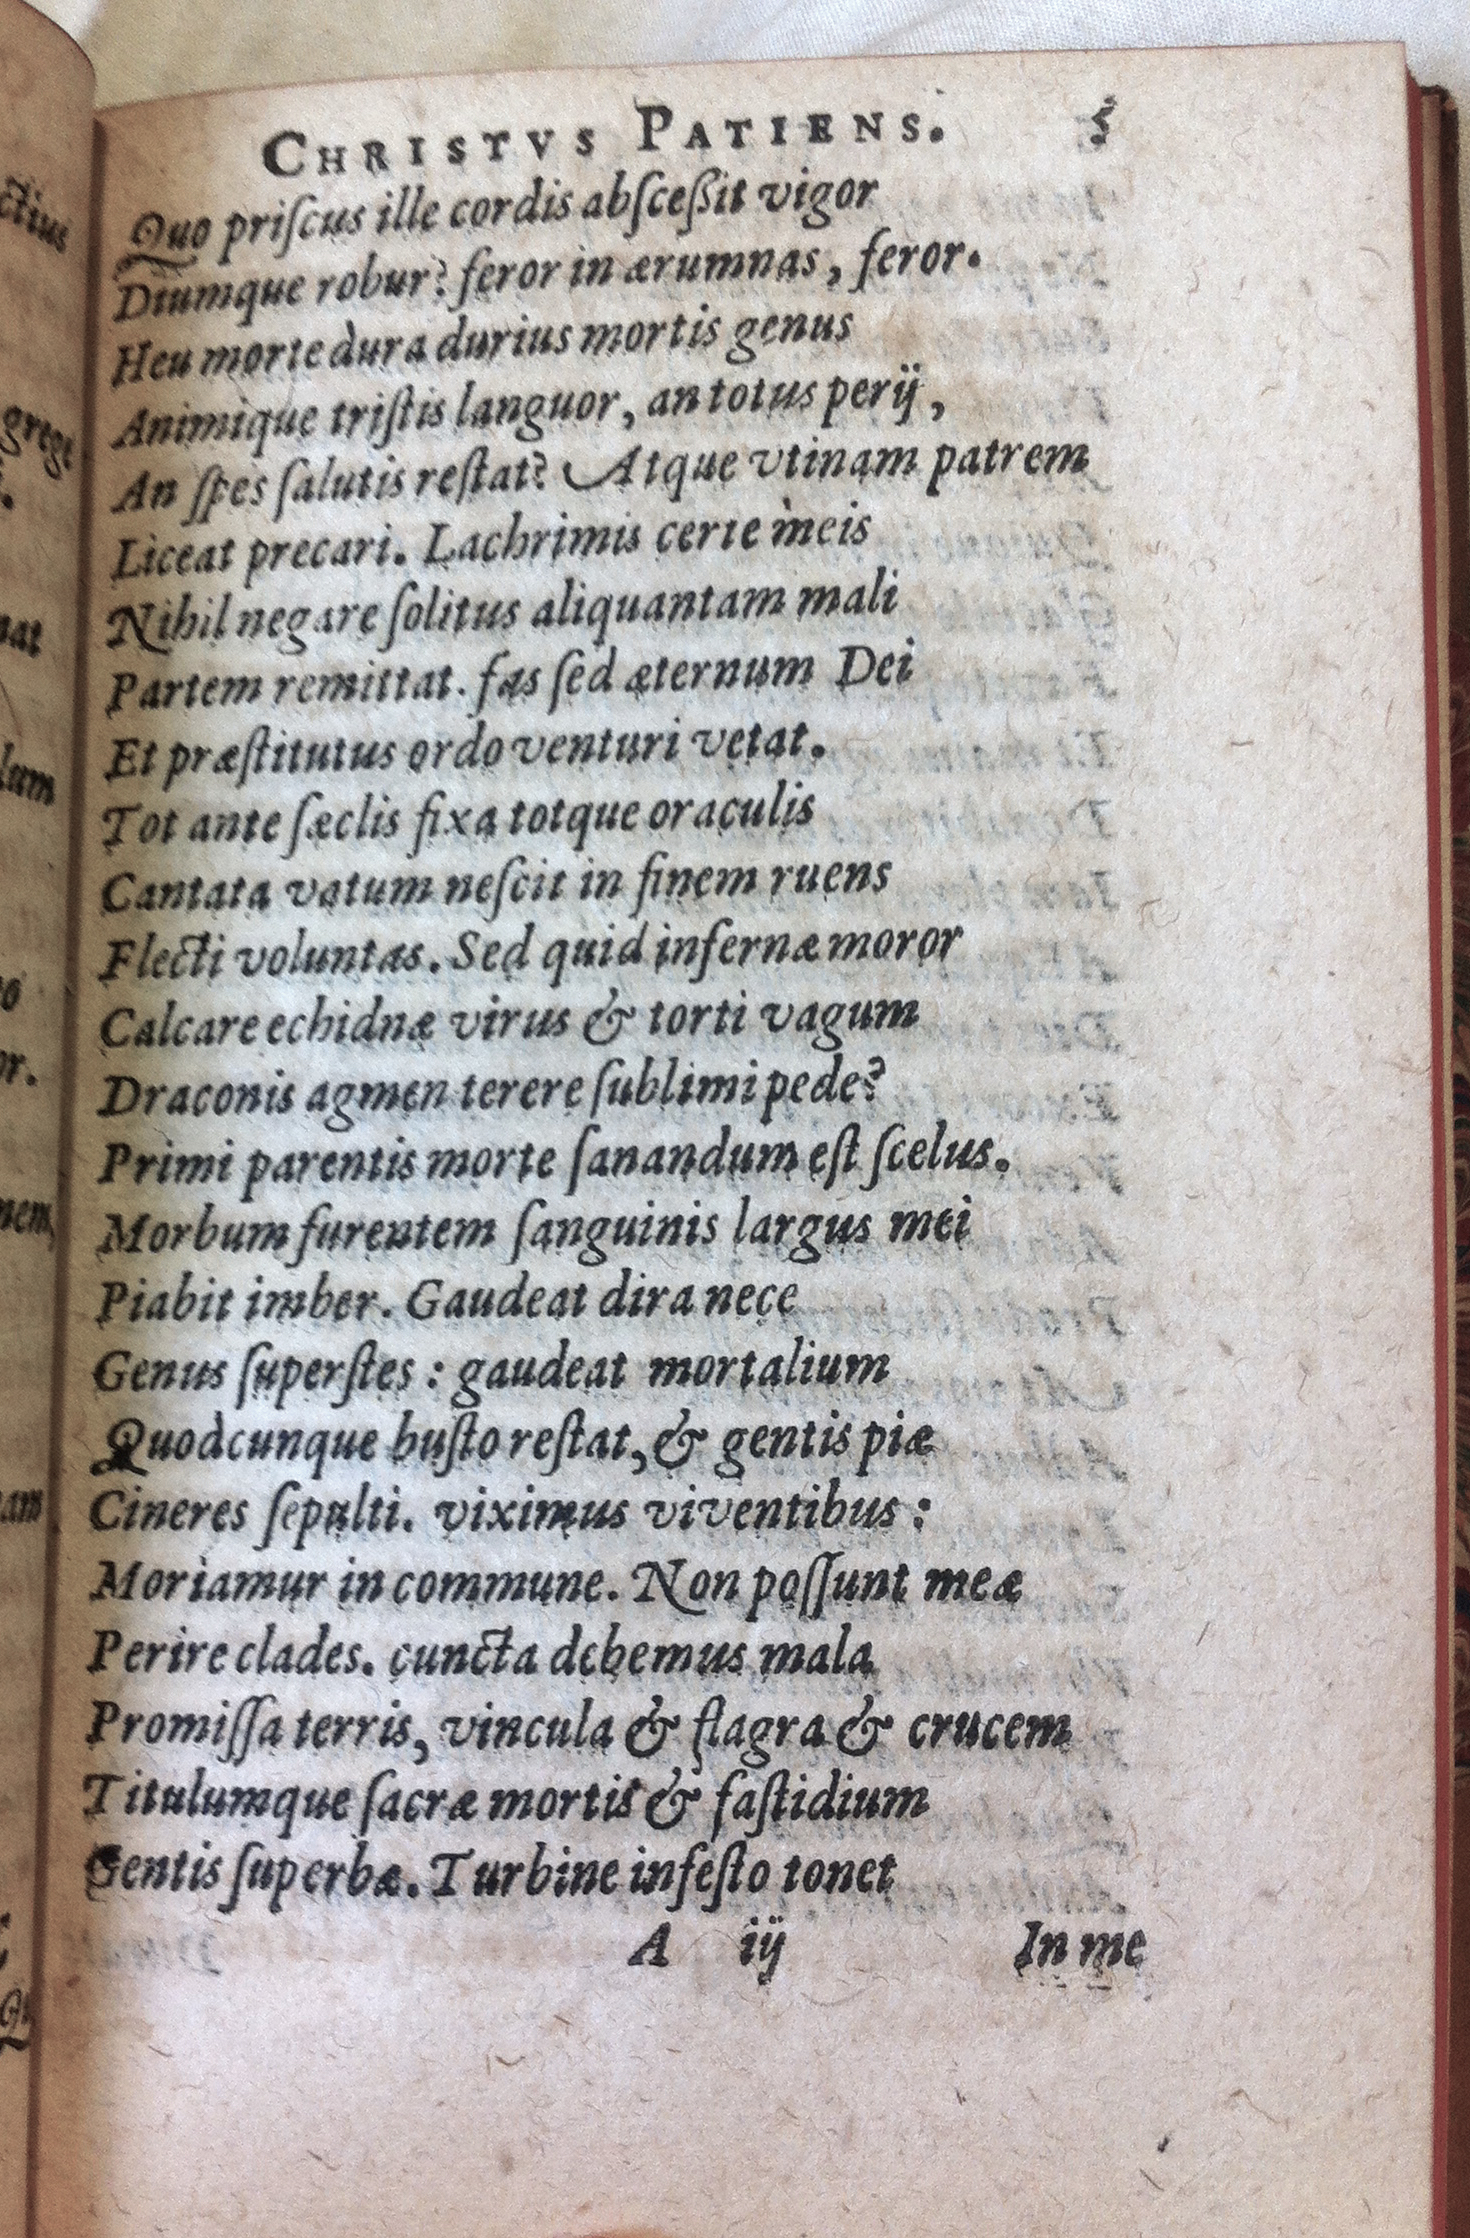 CHRISTVS PATIENS. 5
Quo priſcus ille cordis abſceßit vigor
Diumque robur? feror in ærumnas, feror.
Heu morte dura durius mortis genus
Animique triſtis languor, an totus perij,
An ſpes ſalutis reſtat? Atque vtinam patrem
Liceat precari. Lachrimis certe meis
Nihil negare ſolitus aliquantam mali
Partem remittat. fas ſed æternum Dei
Et præſtitutus ordo venturi vetat.
Tot ante ſæclis fixa totque oraculis
Cantata vatum neſcit in finem ruens
Flecti voluntas. Sed quid infernæ moror
Calcare echidnæ virus & torti vagum
Draconis agmen terere ſublimi pede?
Primi parentis morte ſanandum eſt ſcelus.
Morbum furentem ſanguinis largus mei
Piabit imber. Gaudeat dira nece
Genus ſuperſtes: gaudeat mortalium
Quodcunque buſto reſtat, & gentis piæ
Cineres ſepulti. viximus viventibus:
Moriamur in commune. Non poſſunt meæ
Perire clades. cuncta debemus mala
Promiſſa terris, vincula & flagra & crucem
Titulumque ſacræ mortis & faſtidium
Gentis ſuperbæ. Turbine infeſto tonet
A iij In me